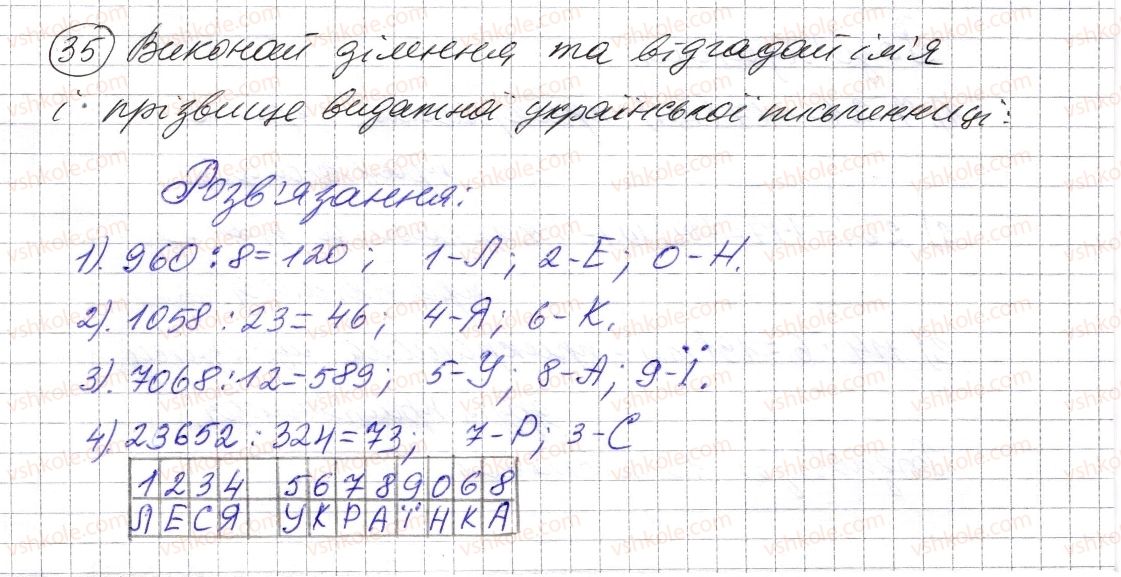 35 Виконай ділення та відгадай ім'я
і прізвище видатної української письменниці:
Розв'язання:
1). 960 : 8 = 120; 1 - Л; 2 - Е; 0 - Н.
2). 1058 : 23 = 46; 4 - Я; 6 - К.
3). 7068 : 12 = 589; 5 - У; 8 - А; 9 - Ї.
4). 23652 : 324 = 73; 7 - Р; 3 - С
1 2 3 4 5 6 7 8 9 0 6 8
Л Е С Я У К Р А Ї Н К А